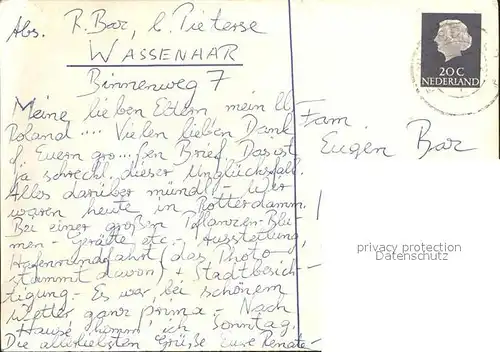 Abs. R. Bar, b. Pieterse
WASSENAAR
Binnenweg 7
Meine lieben Eltern mein ll
Roland .... Vielen lieben Dank
f. Euern gro...ßen Brief. Das ist
ja schreckl. dieser Unglücksfall.
Alles darüber mündl. - Wir
waren heute in Rotterdamm.
Bei einer großen Pflanzen-Blu-
men - Geräte etc. - Ausstellung,
Hafenrundfahrt (das Photo
stammt davon) + Stadtbesich-
tigung. - Es war, bei schönem
Wetter ganz prima. - Nach
Hause komm' ich Sonntag.
Die allerliebsten Grüße Eure Renate -
20 C
NEDERLAND
Fam
Eugen Bar
privacy protection
Datenschutz